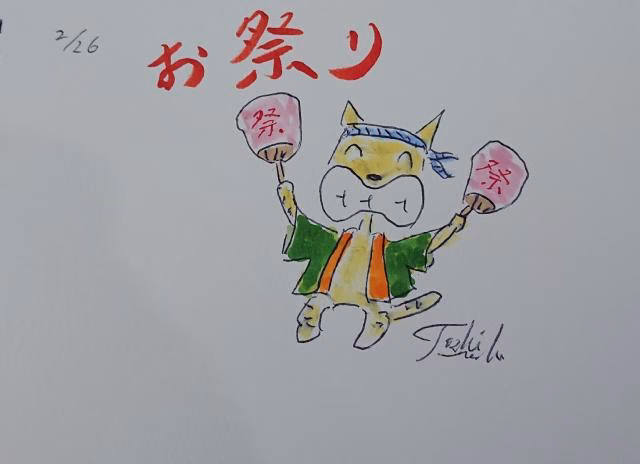 2/26
お祭り
祭
祭